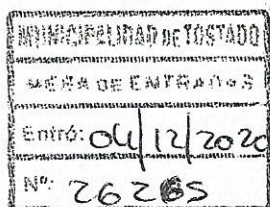 MUNICIPALIDAD DE TOSTADO
MESA DE ENTRADAS
Entró: 04/12/2020
Nº: 26265